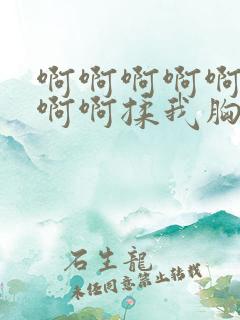 啊啊啊啊啊
啊啊揉我胸
石生龍
未经同意禁止转载